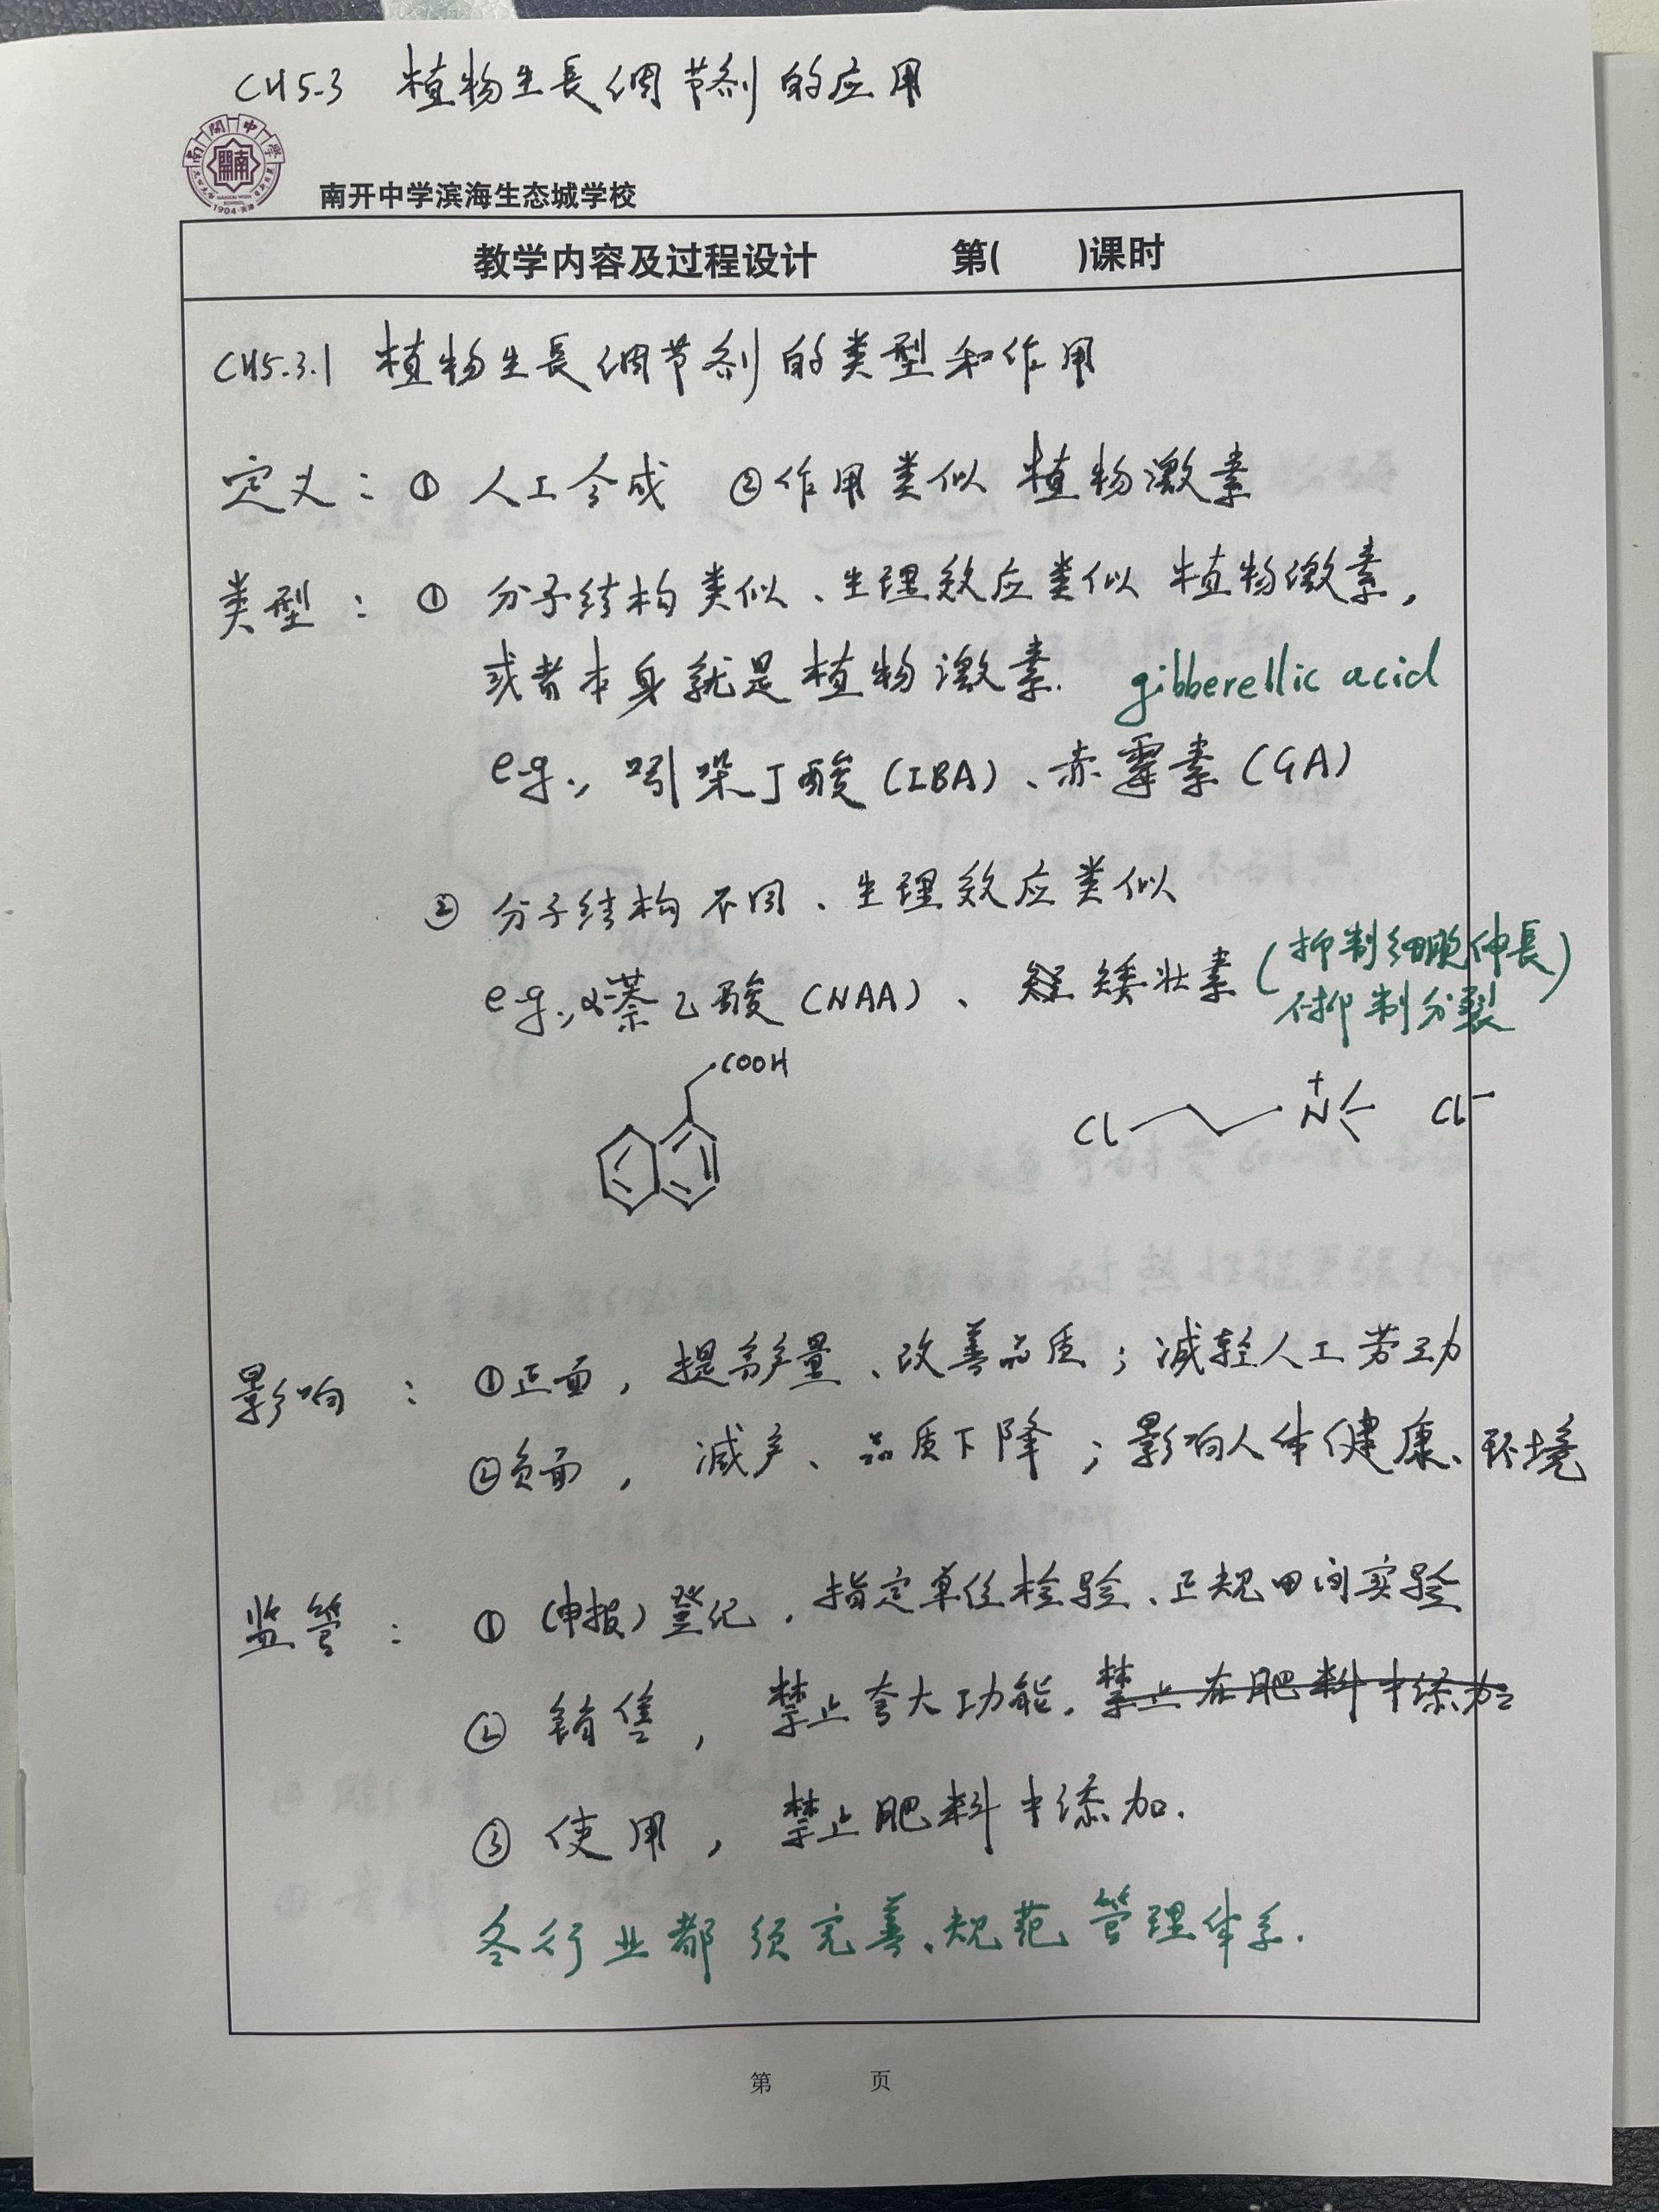 CH5.3 植物生長调节剂的应用
南開中学
1904·天津
南开中学滨海生态城学校
教学内容及过程设计 第( )课时
CH5.3.1 植物生長调节剂的类型和作用
定义：① 人工合成 ②作用类似植物激素
类型：① 分子结构类似、生理效应类似植物激素，
或者本身就是植物激素. gibberellic acid
e.g., 吲哚丁酸(IBA)、赤霉素(GA)
② 分子结构不同、生理效应类似
(抑制细胞伸長
e.g., α-萘乙酸(NAA)、矮壮素
不抑制分裂)
COOH
Cl N+ Cl-
影响：①正面，提高产量、改善品质；减轻人工劳动
②负面，减产、品质下降；影响人体健康、环境
监管：① (申报)登记，指定单位检验、正规田间实验
② 销售，禁止夸大功能. 禁止在肥料中添加
③ 使用，禁止肥料中添加.
各行业都须完善、规范管理体系.
第 页